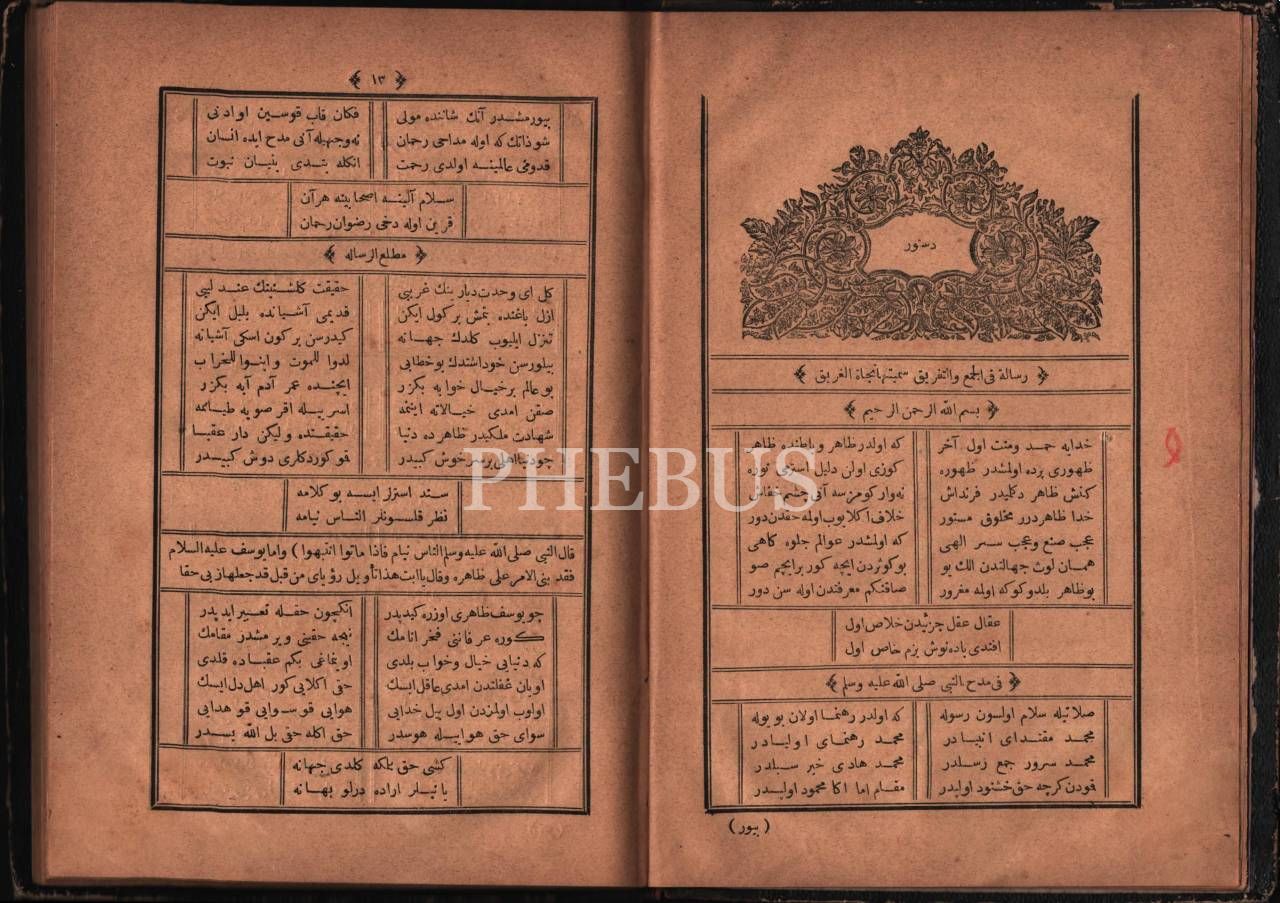 دستور
رسالة فی الجمع والتفریق سمیتها نجاة الغریق
بسم الله الرحمن الرحیم
خدایه حمد ومنت اول آخر که اولدر ظاهر و باطنده ظاهر
ظهوری پرده اولمشدر ظهوره کوزی اولن دلیل استرمی نوره
کنش ظاهر دکلیدر قرنداش نه وار کورمزسه آنی چشم خفاش
خدا ظاهردرر مخلوق مستور خلاف اکلایوب اولمه حقدن دور
عجب صنع وعجب سر الهی که اولمشدر عوالم جلوه کاهی
همان لوث جهالتدن الك یو بو کوثردن ایچه کور برایچم صو
بوظاهر بلدوکوکه اوله مغرور صاقنکم معرفتدن اوله سن دور
عقال عقل جزئیدن خلاص اول
افندی باده نوش بزم خاص اول
فی مدح النبی صلی الله علیه وسلم
صلاتیله سلام اولسون رسوله که اولدر رهنما اولان بو یوله
محمد مقتدای انبیادر محمد رهنمای اولیادر
محمد سرور جمع رسلدر محمد هادی خبر سبلدر
قودن کرچه حق خشنود اولیدر مقام اما اکا محمود اولیدر
(بیور)
١٣
بیورمشدر آنك شاننده مولی فکان قاب قوسین اوادنی
شو ذاتك که اوله مداحی رحمان نه وجهیله آنی مدح ایده انسان
قدومی عالمینه اولدی رحمت انکله بتدی بنیان نبوت
سلام آلینه اصحابینه هرآن
قرین اوله دخی رضوان رحمان
مطلع الرساله
کل ای وحدت دیارینك غریبی حقیقت کلشنینك عندلیبی
ازل باغنده بتمش برکول ایکن قدیمی آشیانده بلبل ایکن
تنزل ایلیوب کلدك جهانه کیدرسن برکون اسکی آشیانه
بیلورسن خود اشتدك بو خطابی لدوا للموت وابنوا للخراب
بو عالم برخیال خوابه بکزر ایچنده عمر آدم آبه بکزر
صقن امدی خیالاته اینمه اسر ییله اقر صویه طیانمه
شهادت ملکیدر ظاهرده دنیا حقیقتده ولیکن دار عقبا
چو دنیا اهلی برسرخوش کبیدر قو کوردکلری دوش کبیسدر
سند استرلر ایسه بو کلامه
نظر قلسونلر الناس نیامه
قال النبی صلی الله علیه وسلم الناس نیام فاذا ماتوا انتبهوا ) واما یوسف علیه السلام
فقد بنی الامر علی ظاهره وقال یاابت هذا تأویل رؤیای من قبل قد جعلها ربی حقا
چو یوسف ظاهری اوزره کیدیدر انکچون حقله تعبیر ایدیدر
کوره عرفانی فخر انامك نیجه حقینی ویرمشدر مقامك
که دنیایی خیال وخواب بلدی اویناغی بکم عقباده قلدی
اویان غفلتدن امدی عاقل ایسك حق اکلایی کور اهل دل ایسك
اولوب اولمزدن اول بیل خدایی هوایی قو سوایی قو هدایی
سوای حق هواییله هوسدر حق اکله حق بل الله بسدر
کشی حق بلمکه کلدی جهانه
یا نیلر اراده درلو بهانه
PHEBUS